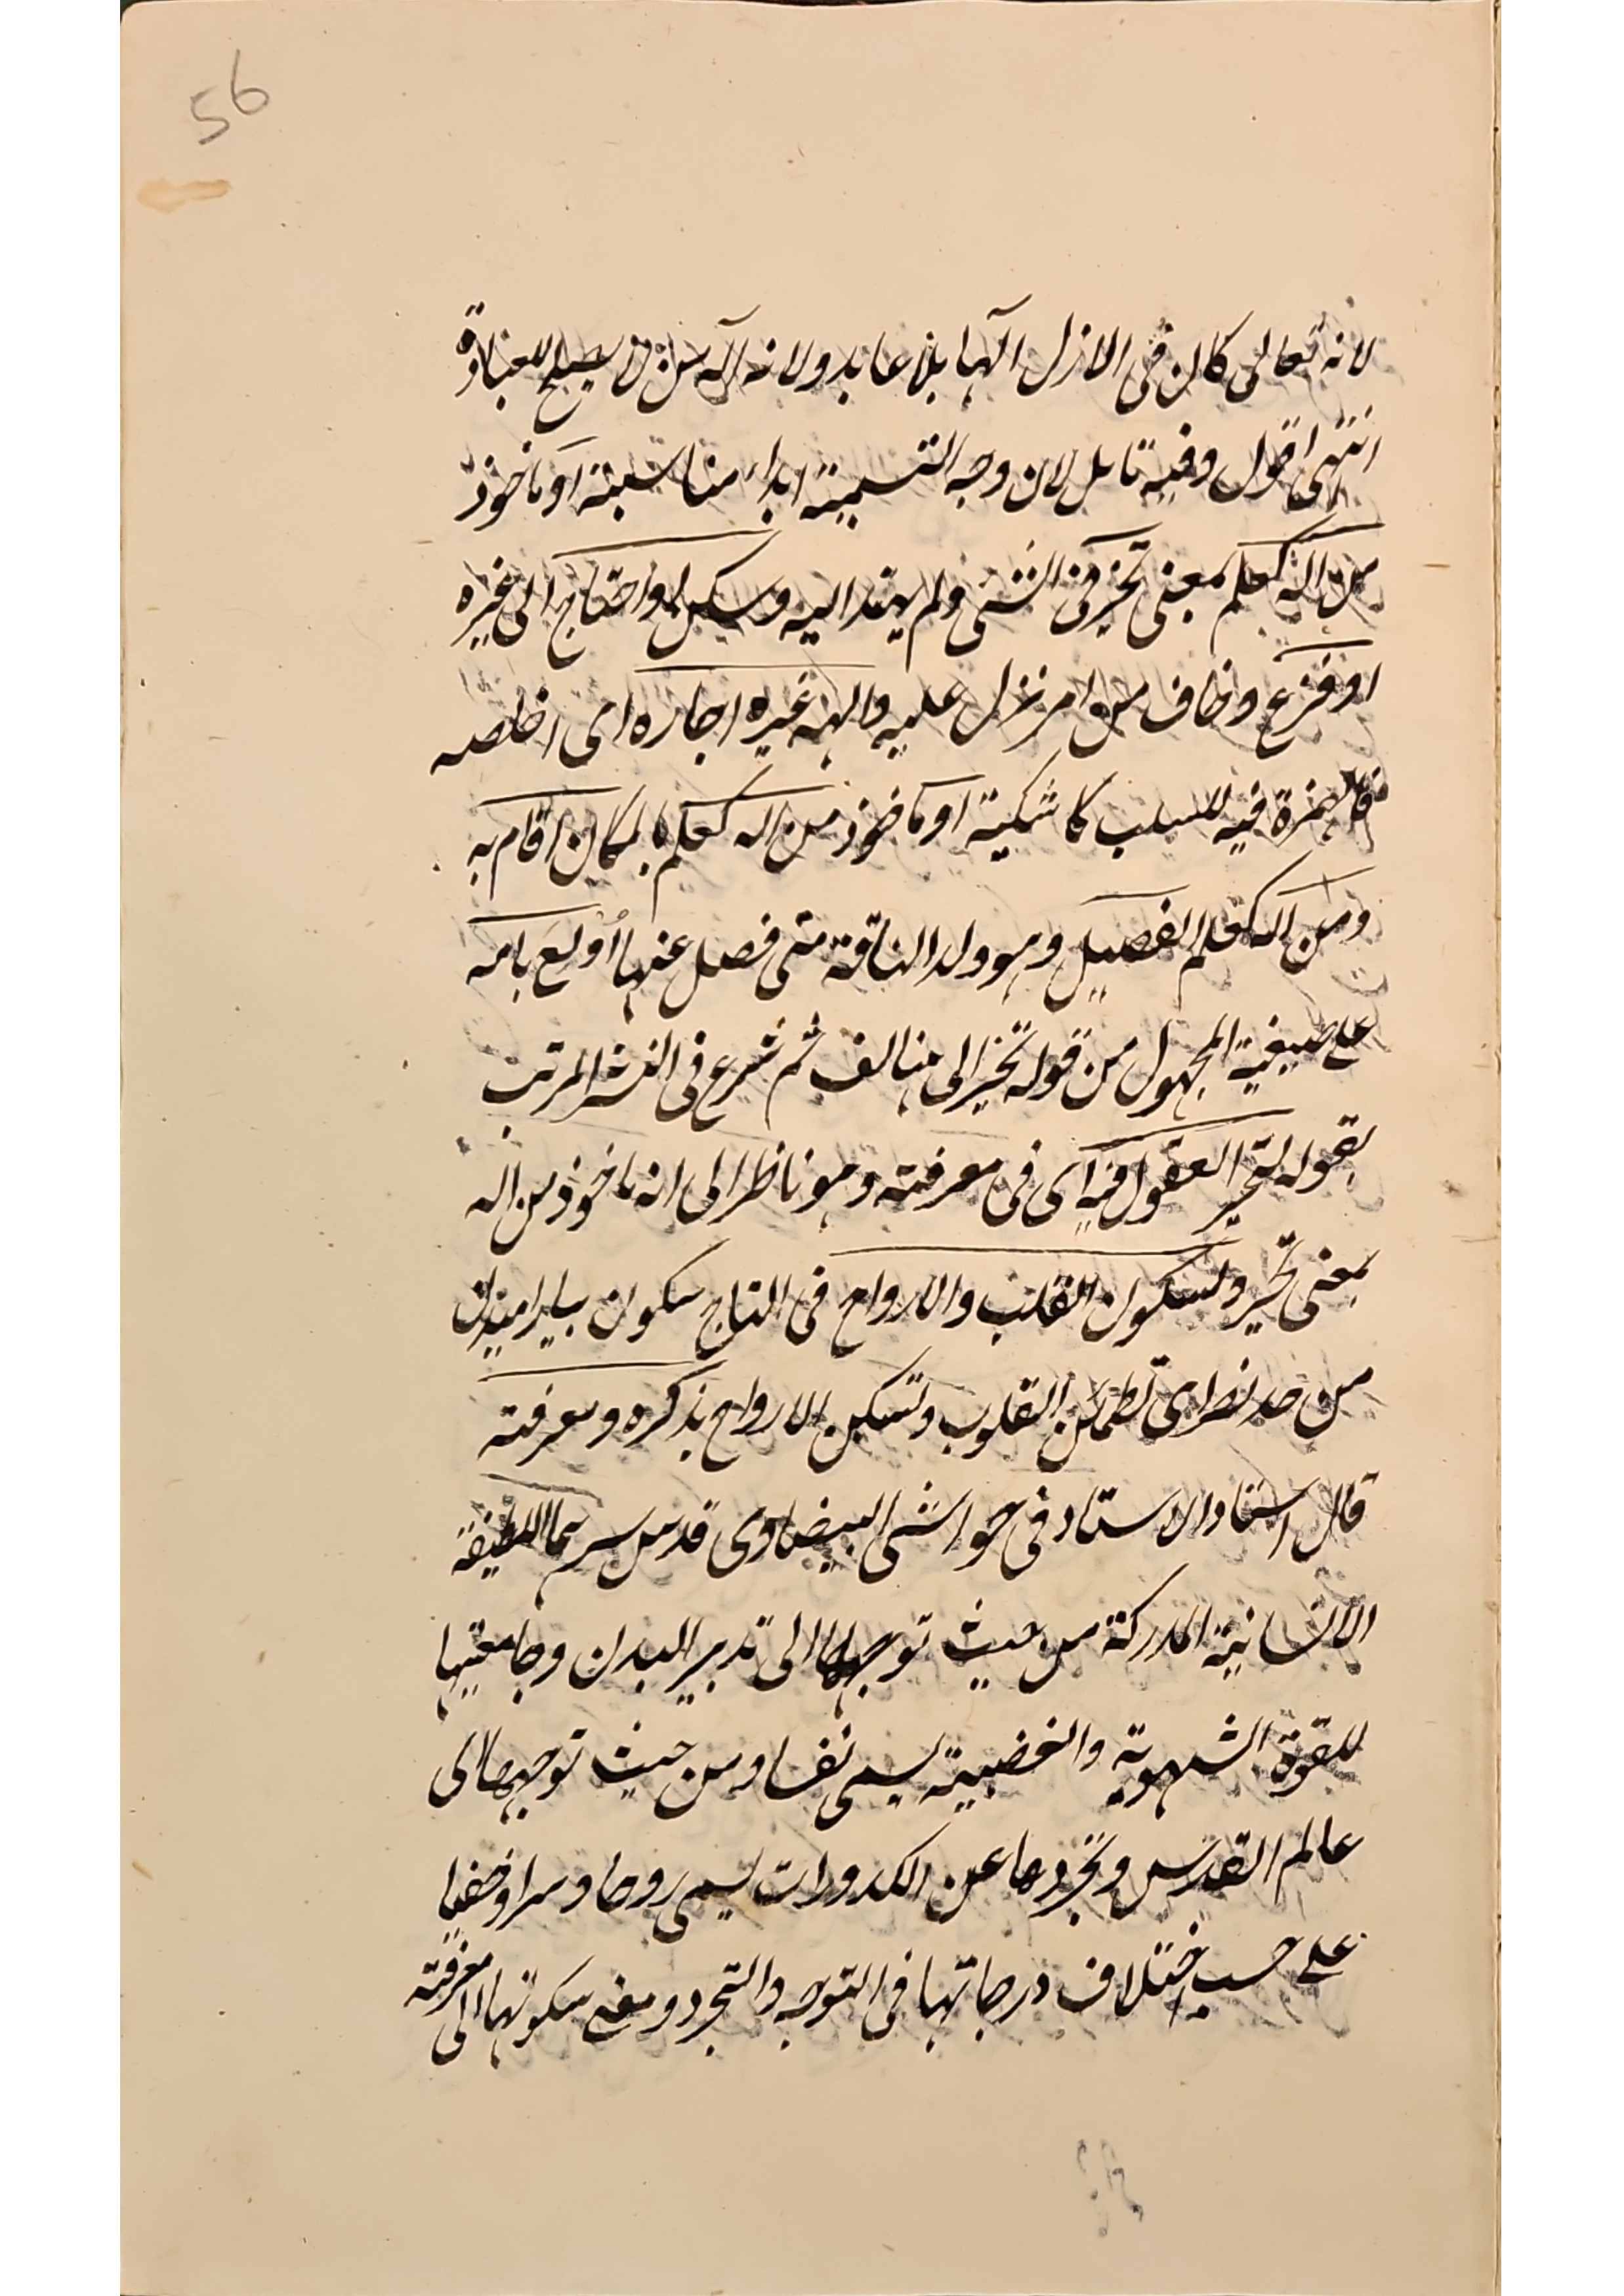 56
لانه تعالى كان فى الازل الها بلا عابد ولانه اله من لا يصلح للعبادة
انتهى اقول وفيه تامل لان وجه التسمية ابداء مناسبة او ماخوذ
من اله كعلم بمعنى تحير فى الشئ ولم يهتد اليه وسكن او احتاج الى غيره
او فزع وخاف من امر نزل عليه والهه غيره اجاره اى اخلصه
فالهمزة فيه للسلب كاشكيته او ماخوذ من اله كعلم بالمكان اقام به
ومن اله كعلم الفصيل وهو ولد الناقة متى فصل عنها اولع بامه
على صيغة المجهول من قوله تحير الى هنا لف ثم شرع فى النشر المرتب
بقوله لتحير العقول فيه اى فى معرفته وهو ناظر الى انه ماخوذ من اله
بمعنى تحير ولسكون القلب والارواح فى التاج سكون بيارامیدن
من حد نصر اى تطمئن القلوب وتسكن الارواح بذكره ومعرفته
قال استاد الاستاد فى حواشى البيضاوى قدس سرهما اللطيفة
الانسانية المدركة من حيث توجهها الى تدبير البدن وجامعيتها
للقوة الشهوية والغضبية يسمى نفسا ومن حيث توجهها الى
عالم القدس وتجردها عن الكدورات يسمى روحا وسرا وخفيا
على حسب اختلاف درجاتها فى التوجه والتجرد ومعنى سكونها الى معرفته